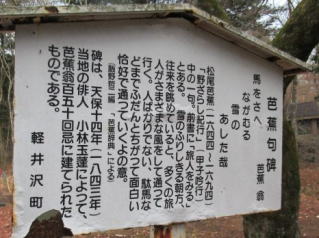 芭蕉句碑
馬をさへ 芭蕉翁
ながむる
雪の
あした哉
松尾芭蕉(一六四四〜一六九四)
「野ざらし紀行」(甲子吟行)
中の一句。前書に「旅人をみる」
とある。雪のふりしきる朝方、
往来を眺めていると、多くの旅
人がさまざまな風をして通って
行く。人ばかりでない、駄馬な
どまでふだんとちがって面白い
恰好で通っていくよの意。
(飯野哲二編「芭蕉辞典」による)
碑は、天保十四年(一八四三年)
当地の俳人 小林玉蓬によって、
芭蕉翁百五十回忌に建てられた
ものである。
軽井沢町